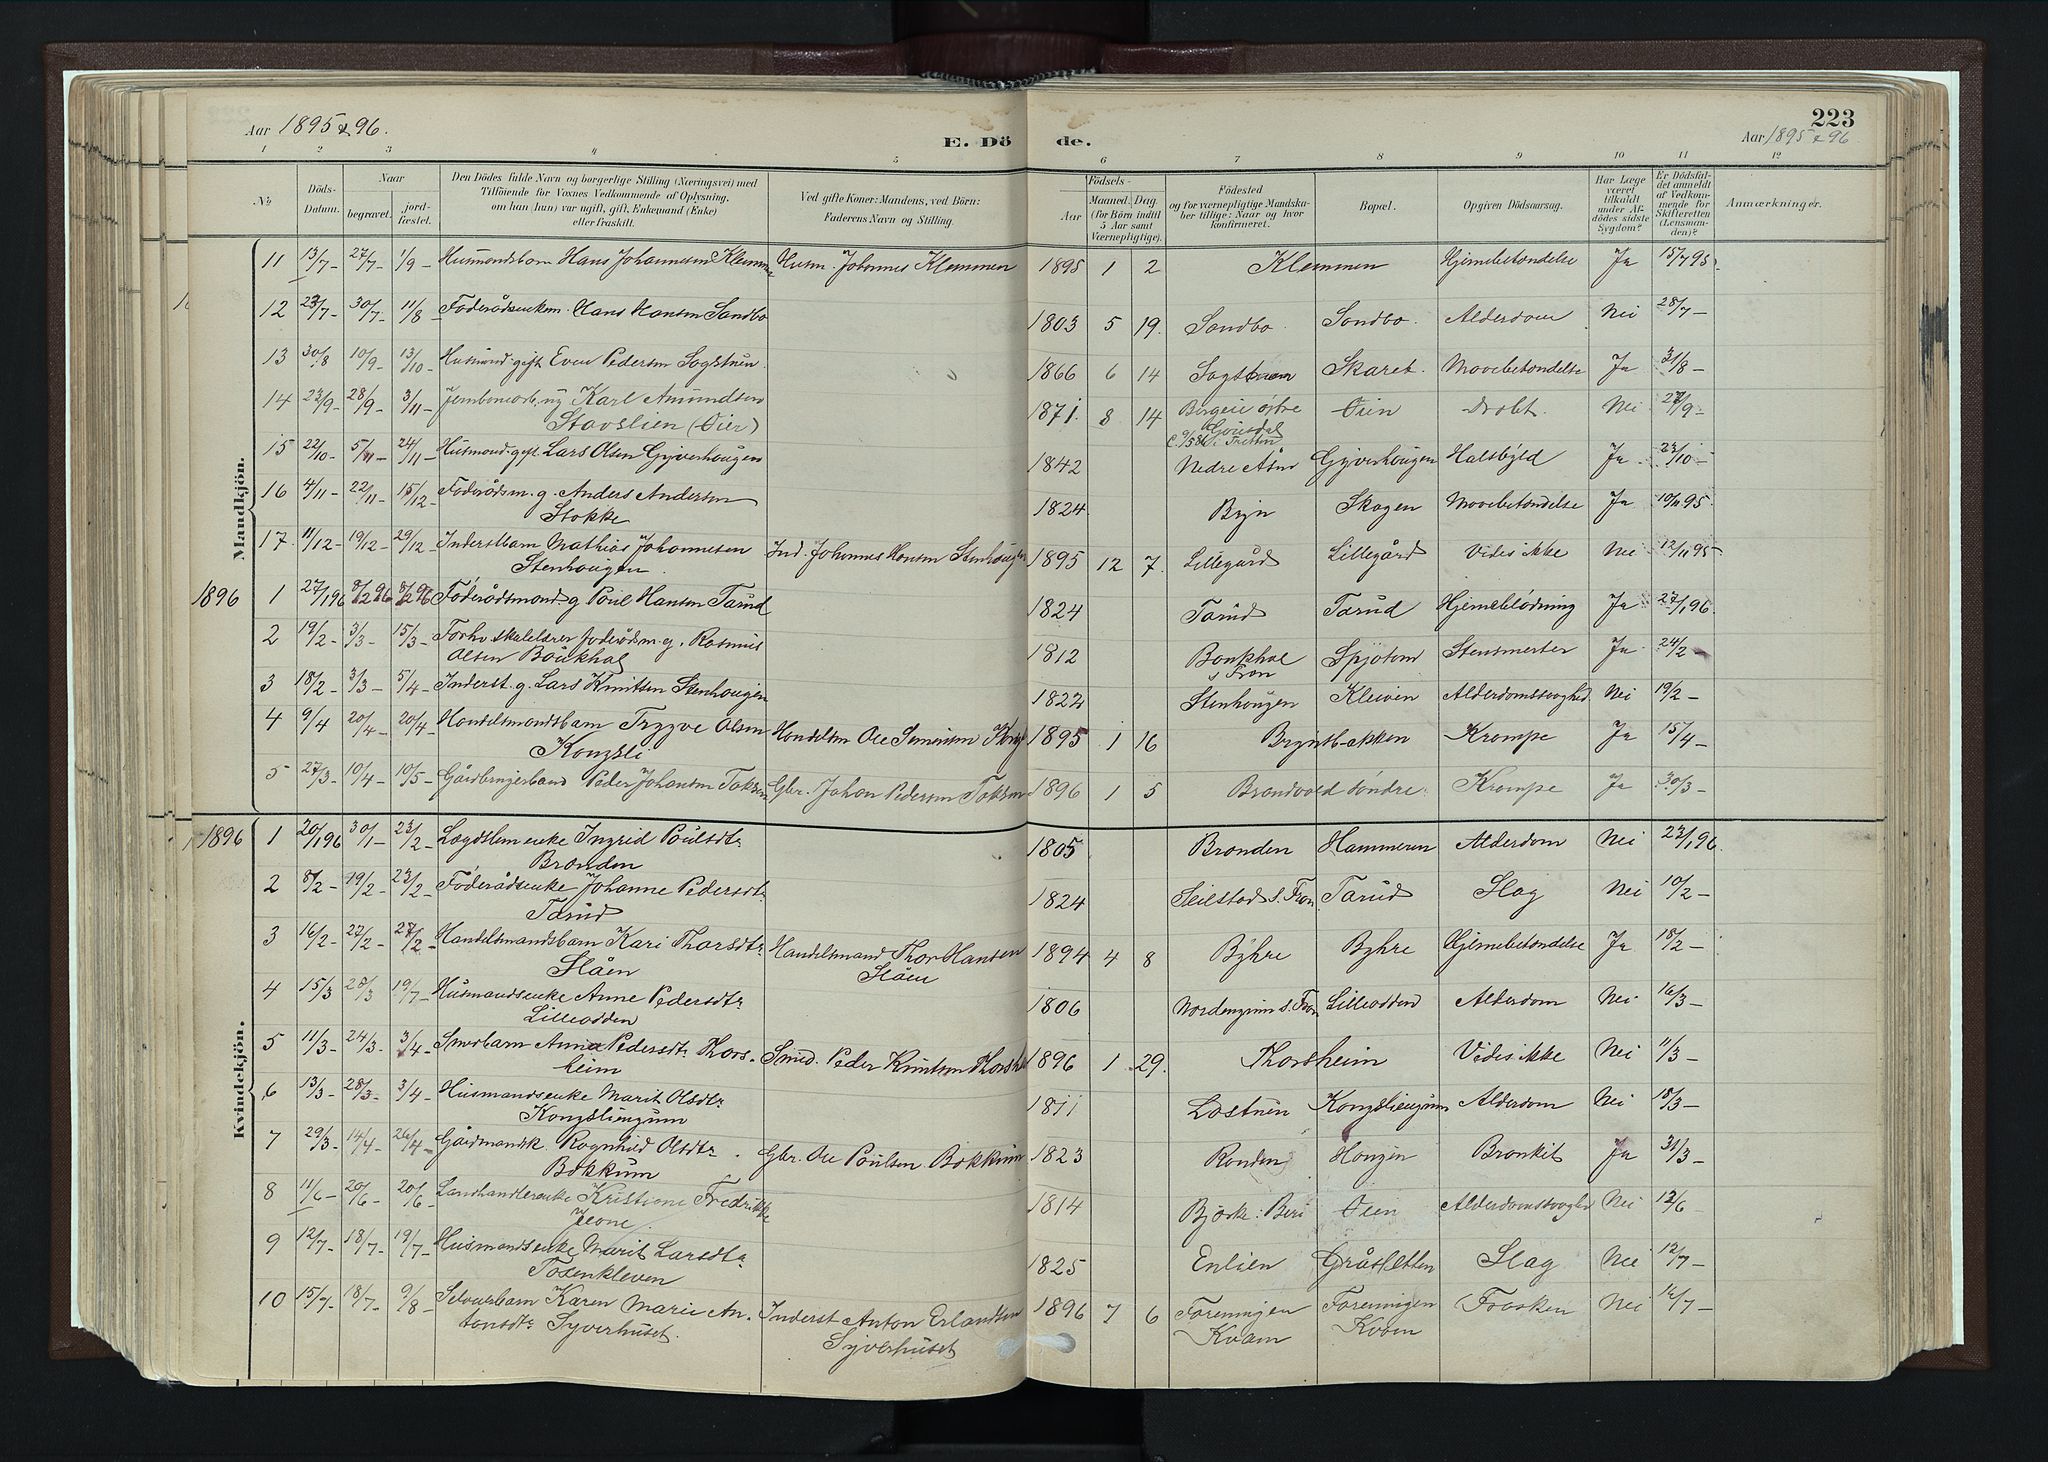 Aar 1895 & 96.
E. Dö
de.
223
Aar 1895 & 96
1 2 3 4 5 6 7 8 9 10 11 12
No.
Döds-Datum.
Naar
begravet.
jord-fæstet.
Den Dödes fulde Navn og borgerlige Stilling (Næringsvei) med
Tilföiende for Voxnes Vedkommende af Oplysning,
om han (hun) var ugift, gift, Enkemand (Enke)
eller fraskilt.
Ved gifte Koner: Mandens, ved Börn:
Faderens Navn og Stilling.
Födsels-
Aar
Maaned. Dag.
(for Börn indtil
5 Aar samt
Værnepligtige).
Födested
og for værnepligtige Mandska-
ber tillige: Naar og hvor
konfirmeret.
Bopæl.
Opgiven Dödsaarsag.
Har Læge
været
tilkaldt
under Af-
dödes sidste
Sygdom?
Er Dödsfal-
det anmeldt
af Vedkom-
mende for
Skifteretten
(Lensman-
den)?
Anmærkninger.
Mandkjön.
11 13/7- 27/7- 1/9- Husmandsbarn Hans Johannesen Klemmen Husm. Johannes Klemmen 1895 1 2 Klemmen Hjernebetændelse Ja 15/7 95.
12 23/7- 30/7- 11/8- Föderådsenkem. Hans Hansen Sandbo 1803 5 19. Sandbo Sandbo. Alderdom Nei 28/7-
13 30/8 10/9- 13/10- Husmand gift Even Pedersen Sagstuen. 1866 6 14 Sagstuen Skaret. Mavebetændelse Ja 31/8-
14 23/9- 28/9- 3/11- Jernbanearb. ug Karl Amundsen 1871. 8 14 Øien Drobt. Nei 27/9-
Stavslien (Öier)
15 22/10- 5/11- 24/11- Husmand gift Lars Olsen Gyverhaugen 1842 Nedre Åsen Gyverhaugen Halsbyld Ja 23/10-
16 4/11- 22/11- 15/12- Föderådsm. g. Anders Andersen 1824 Bryn Skogen Mavebetændelse Ja 10/11 95
Stokke
17. 11/12- 19/12- 29/12- Inderstbarn Mathias Johannesen Ind. Johannes Hansen Stenhaugen 1895 12 7. Lillegård Lillegård Vides ikke Nei 12/11 95.
Stenhaugen.
1896 1 27/1 96 8/2 96 8/2 96 Föderådsmand g Poul Hansen Tarud 1824 Tarud Tarud Hjerneblödning Ja 27/1 96.
2 19/2- 3/3- 15/3- Forhv skolelærer föderådsm. g. Rasmus 1812 Baukhol Spjotem Stensmerter Ja 24/2-
Olsen Baukhol s Fron
3 18/2- 3/3- 5/4- Inderst. g. Lars Knutsen Stenhaugen 1822 Stenhaugen Kleiven Alderdomssvaghed Nei 19/2-
4 9/4 20/4- 20/4- Handelsmandsbarn Trygve Olsen 1895 1 16 Brynsbakken Krampe Ja 15/4-
Kongsli
5 27/3- 10/4- 10/5- Gårdbrugerbarn Peder Johansen Toksen Gbr. Johan Pedersen Toksen 1896 1 5 Brandvold söndre. Krampe Ja 30/3-
Kvindekjön.
1896 1 20/1 96 30/1- 23/2- Lægdslem enke Ingrid Poulsdtr 1805 Branden Hammeren Alderdom Nei 23/1 96.
Branden
2 8/2- 19/2- 23/2- Föderådsenke Johanne Pedersdtr 1824 Seielstad s. Fron Tarud Slag Nei 10/2-
Tarud
3 16/2- 22/2- 27/2- Handelsmandsbarn Kari Thorsdtr Handelsmand Thor Hansen 1894 4 8 Byhre Byhre Hjernebetændelse Ja 18/2-
Slåen Slåen
4 15/3 28/3 19/7- Husmandsenke Anne Pedersdtr 1806 s. Fron Lilleodden Alderdom Nei 16/3-
Lilleodden
5 11/3- 24/3- 3/4- Smedbarn Anna Pedersdtr Thors- Smed. Peder Knutsen 1896 1 29. Thorsheim Vides ikke Nei 11/3-
heim
6 13/3- 28/3- 3/4- Husmandsenke Marit Olsdtr 1811 Lostuen Kongsliengum Alderdom Nei 18/3-
Kongsliengum
7 29/3- 14/4- 26/4- Gårdmandsk. Ragnhild Olsdtr. Gbr. Ole Poulsen Bakkum 1823 Randen Haugen Bronkit Ja 31/3-
Bakkum
8 11/6- 20/6- 20/6 Landhandlerenke Kristiane Fredrikke 1814 Øien Alderdomssvaghed Nei 12/6
9 12/7- 18/7- 19/7- Husmandsenke Marit Larsdtr 1825 Enlien Gråsletten Slag Nei 12/7-
10 15/7- 18/7- 9/8- Karen Marie An- Inderst Anton Erlandsen 1896 7 6 Foreningen Foreningen Frasken Nei 16/7-
tonsdtr Syverhuset. Syverhuset Kvam Kvam